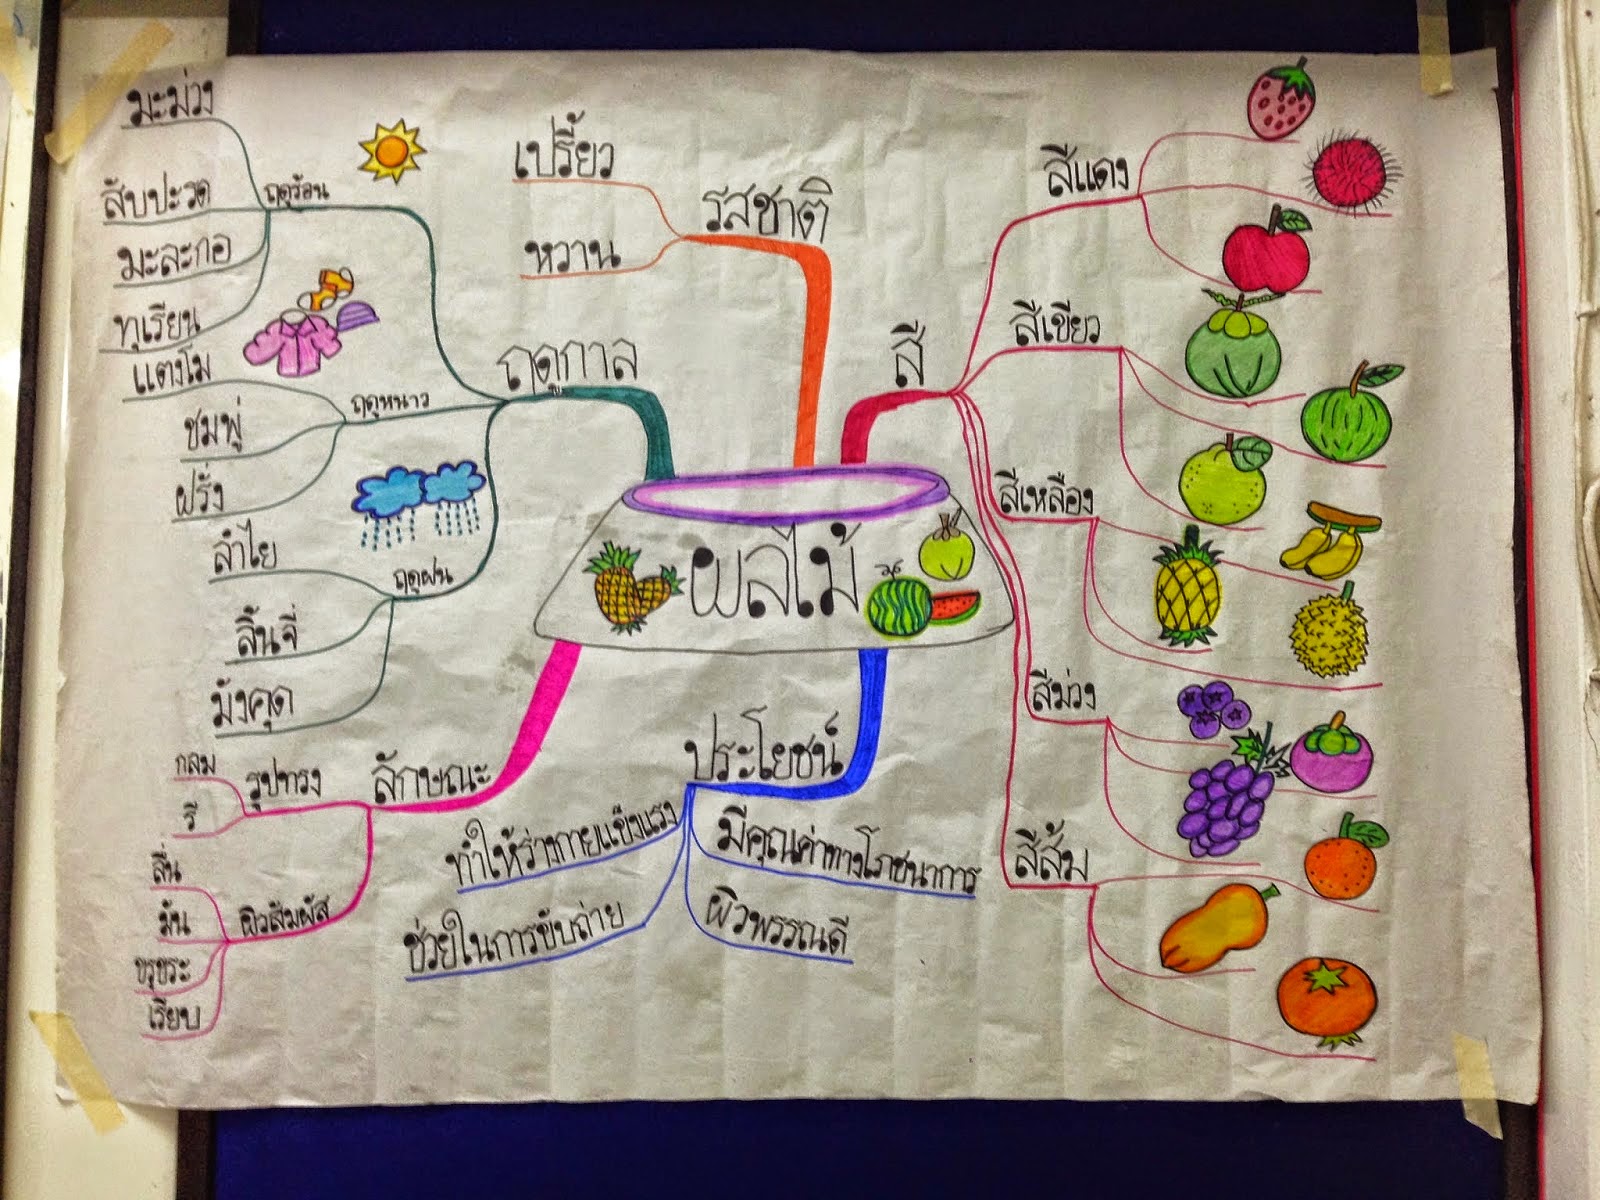 ผลไม้
ฤดูกาล
ฤดูร้อน
มะม่วง
สับปะรด
มะละกอ
ทุเรียน
ฤดูหนาว
แตงโม
ชมพู่
ฝรั่ง
ฤดูฝน
ลำไย
ลิ้นจี่
มังคุด
รสชาติ
เปรี้ยว
หวาน
สี
สีแดง
สีเขียว
สีเหลือง
สีม่วง
สีส้ม
ลักษณะ
รูปทรง
กลม
รี
ผิวสัมผัส
ลื่น
มัน
ขรุขระ
เรียบ
ประโยชน์
ทำให้ร่างกายแข็งแรง
ช่วยในการขับถ่าย
มีคุณค่าทางโภชนาการ
ผิวพรรณดี